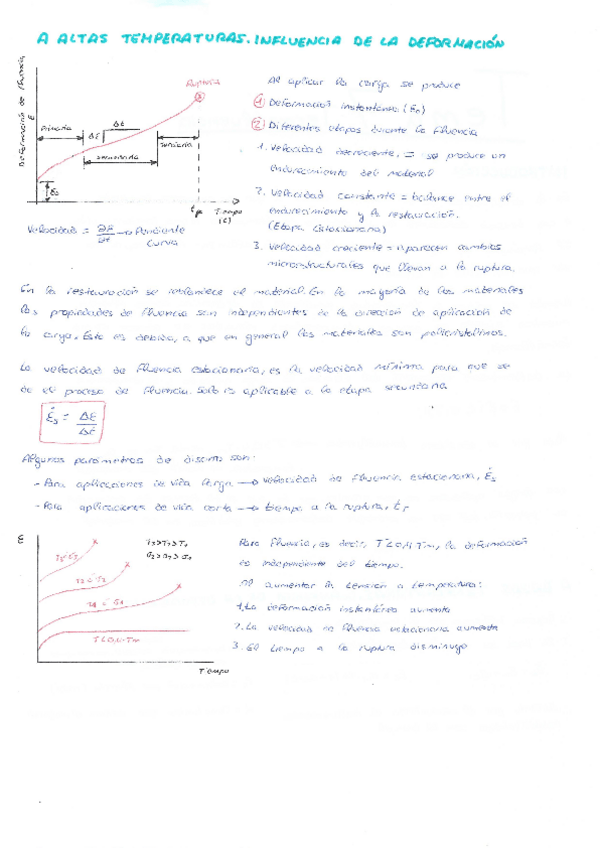 A ALTAS TEMPERATURAS. INFLUENCIA DE LA DEFORMACIÓN
Deformación de Fluencia
ε
Ruptura
Primaria
Δε
Δt
secundaria
Terciaria
ε₀
tr Tiempo
(t)
Velocidad = ∂ε/∂t → Pendiente
curva
Al aplicar la carga se produce
① Deformación instantánea (ε₀)
② Diferentes etapas durante la fluencia
1. velocidad decreciente = se produce un
endurecimiento del material
2. velocidad constante = balance entre el
endurecimiento y la restauración.
(Etapa Estacionaria)
3. velocidad creciente = aparecen cambios
microstructurales que llevan a la ruptura.
En la restauración se reblandece el material. En la mayoría de los materiales
las propiedades de fluencia son independientes de la dirección de aplicación de
la carga. Esto es debido, a que en general los materiales son policristalinos.
La velocidad de fluencia estacionaria, es la velocidad mínima para que se
de el proceso de fluencia. Solo es aplicable a la etapa secundaria
ε̇s = Δε/Δt
Algunos parámetros de diseño son:
- Para aplicaciones de vida larga → velocidad de fluencia estacionaria, ε̇s
- Para aplicaciones de vida corta → tiempo a la ruptura, tr
ε
T3>T2>T1
σ3>σ2>σ1
T3 ó σ3
T2 ó σ2
T1 ó σ1
T<0,4·Tm
Tiempo
Para fluencia, es decir, T<0,4 Tm, la deformación
es independiente del tiempo.
Al aumentar la tensión o temperatura:
1. La deformación instantánea aumenta
2. La velocidad de fluencia estacionaria aumenta
3. El tiempo a la ruptura disminuye